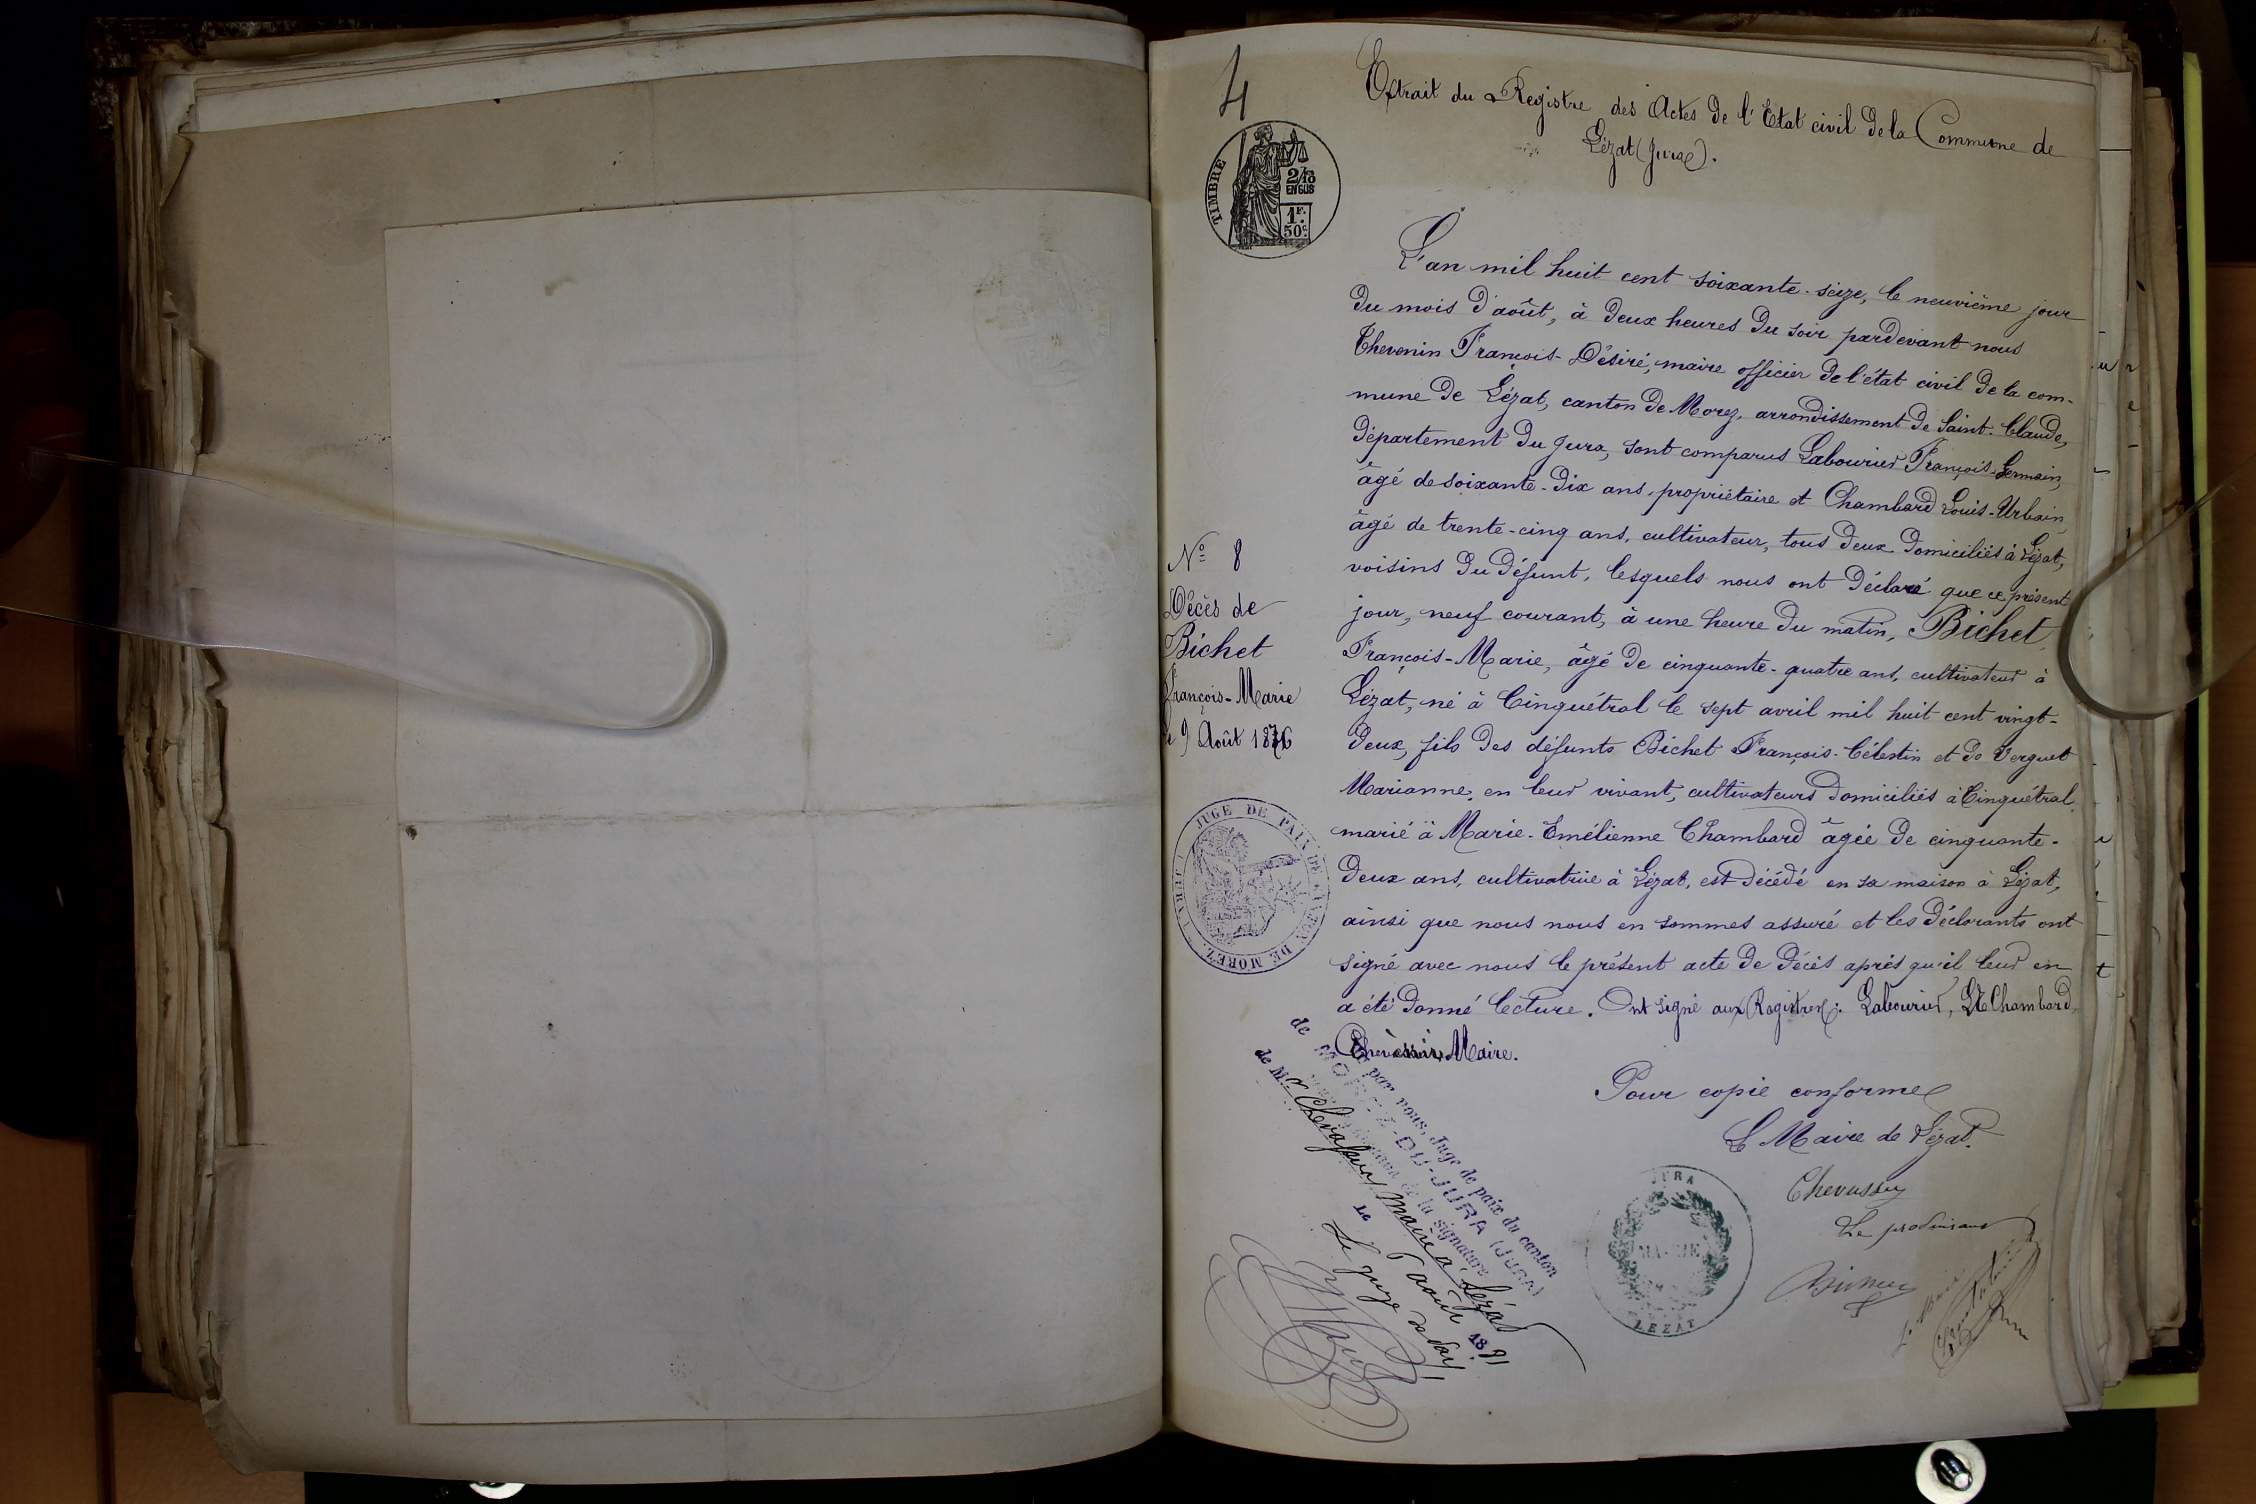 4
Extrait du Registre des Actes de l'Etat civil de la Commune de
Lézat (Jura).
TIMBRE
2/10
EN SUS
1F.
50c.
L'an mil huit cent soixante-seize, le neuvième jour
du mois d'août, à deux heures du soir pardevant nous
Thevenin François-Désiré, maire officier de l'état civil de la com-
mune de Lézat, canton de Morez, arrondissement de Saint-Claude,
département du Jura, sont comparus Labourier François-Germain,
âgé de soixante-dix ans, propriétaire et Chambard Louis-Urbain,
âgé de trente-cinq ans, cultivateur, tous deux domiciliés à Lézat,
voisins du défunt, lesquels nous ont déclaré que ce présent
jour, neuf courant, à une heure du matin, Bichet
François-Marie, âgé de cinquante-quatre ans, cultivateur à
Lézat, né à Cinquétral le sept avril mil huit cent vingt-
deux, fils des défunts Bichet François-Célestin et de Verguet
Marianne, en leur vivant, cultivateurs domiciliés à Cinquétral,
marié à Marie-Emélienne Chambard âgée de cinquante-
deux ans, cultivatrice à Lézat, est décédé en sa maison à Lézat,
ainsi que nous nous en sommes assuré et les déclarants ont
signé avec nous le présent acte de décès après qu'il leur en
a été donné lecture. Ont signé aux Registres: Labourier, Chambard,
Maire.
No 8
Décès de
Bichet
François-Marie
le 9 Août 1876
JUGE DE PAIX DU CANTON DE MOREZ
Pour copie conforme
Le Maire de Lézat.
Chevassu
par nous, Juge de paix du canton
de MOREZ-DU-JURA (JURA)
de la signature
de Mr Chevassus, Maire à Lézat
Le 6 août 1891
Le juge de paix
JURA
MAIRIE
LEZAT